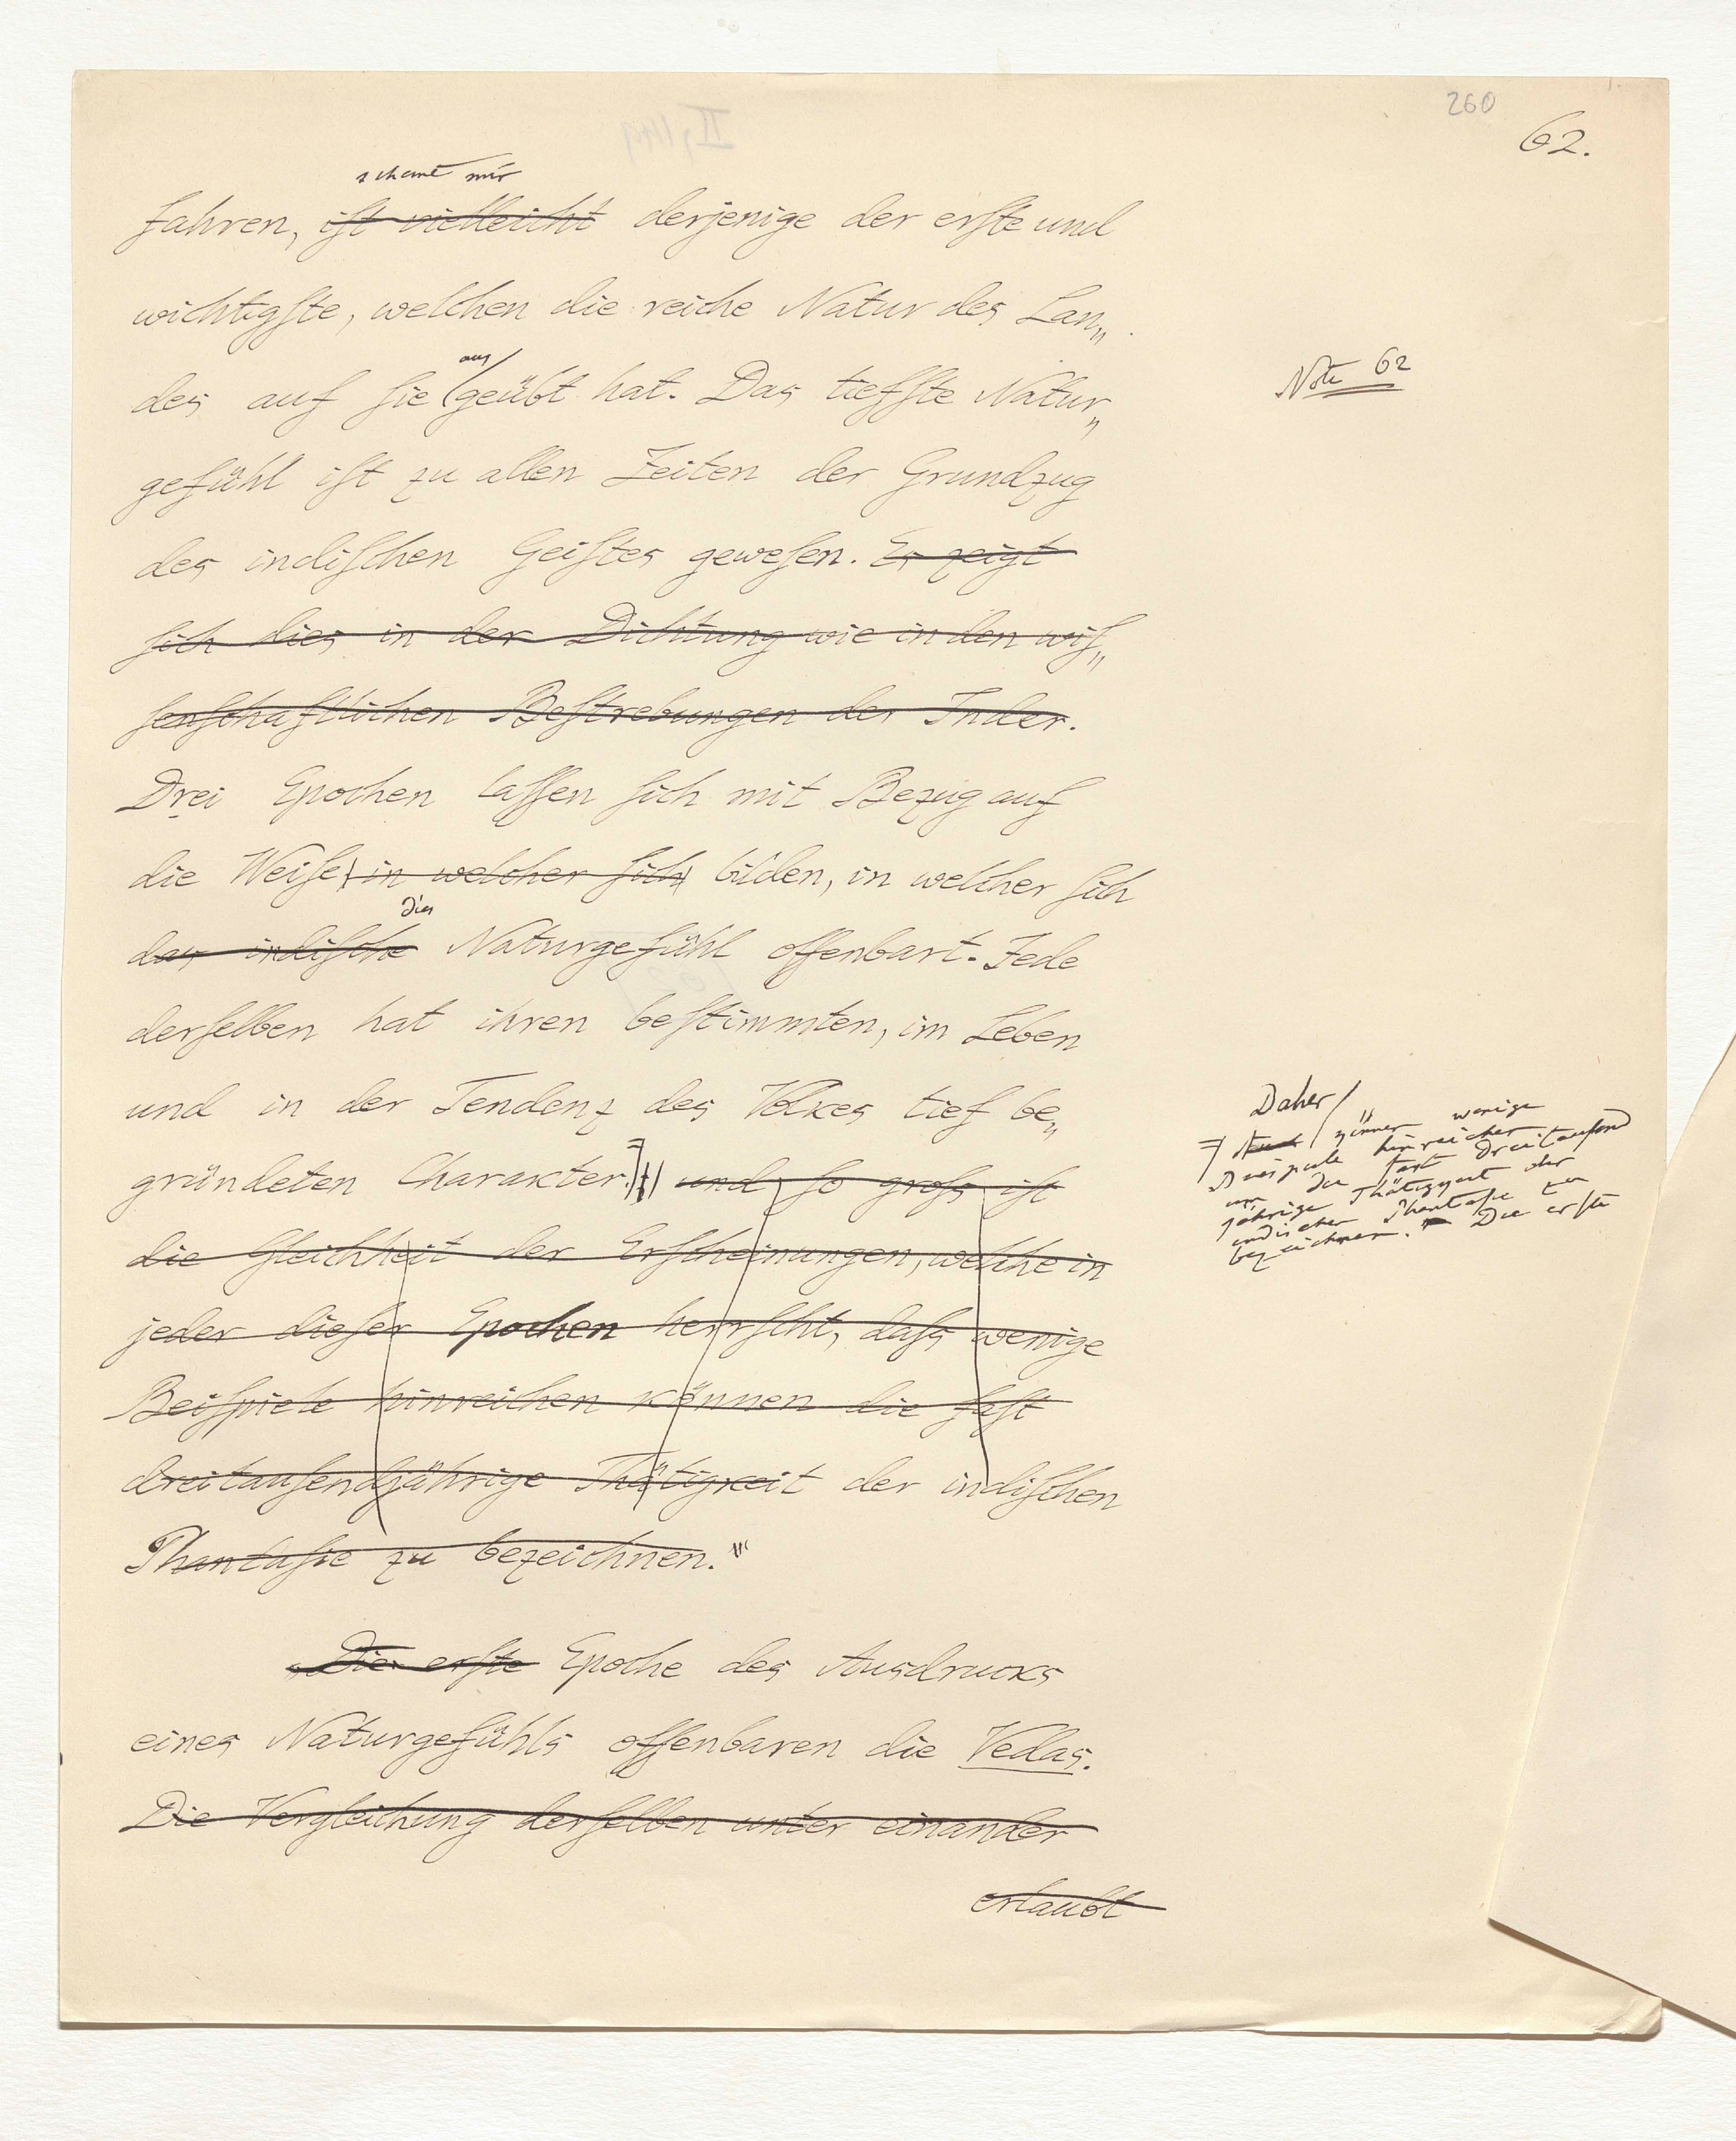 260
62.
scheint mir
fahren, ist vielleicht derjenige der erste und
wichtigste, welchen die reiche Natur des Lan„
aus
des auf sie geübt hat. Das tiefste Natur„
Note 62
gefühl ist zu allen Zeiten der Grundzug
des indischen Geistes gewesen. Es zeigt
sich dies in der Dichtung wie in den wis„
senschaftlichen Bestrebungen der Inder.
Drei Epochen lassen sich mit Bezug auf
die Weise in welcher sich bilden, in welcher sich
dies
das indische Naturgefühl offenbart. Jede
derselben hat ihren bestimmten, im Leben
und in der Tendenz des Volkes tief be„
gründeten Charakter. und so gross ist
die Gleichheit der Erscheinungen, welche in
jeder dieser Epochen herrscht, dass wenige
Beispiele hinreichen können die fast
dreitausendjährige Thätigkeit der indischen
Phantasie zu bezeichnen."
Daher
können wenige
Beispiele hinreichen
um die fast dreitausend
jährige Thätigkeit der
indischen Phantasie zu
bezeichnen. Die erste
Die erste Epoche des Ausdrucks
eines Naturgefühls offenbaren die Vedas.
Die Vergleichung derselben unter einander
erlaubt